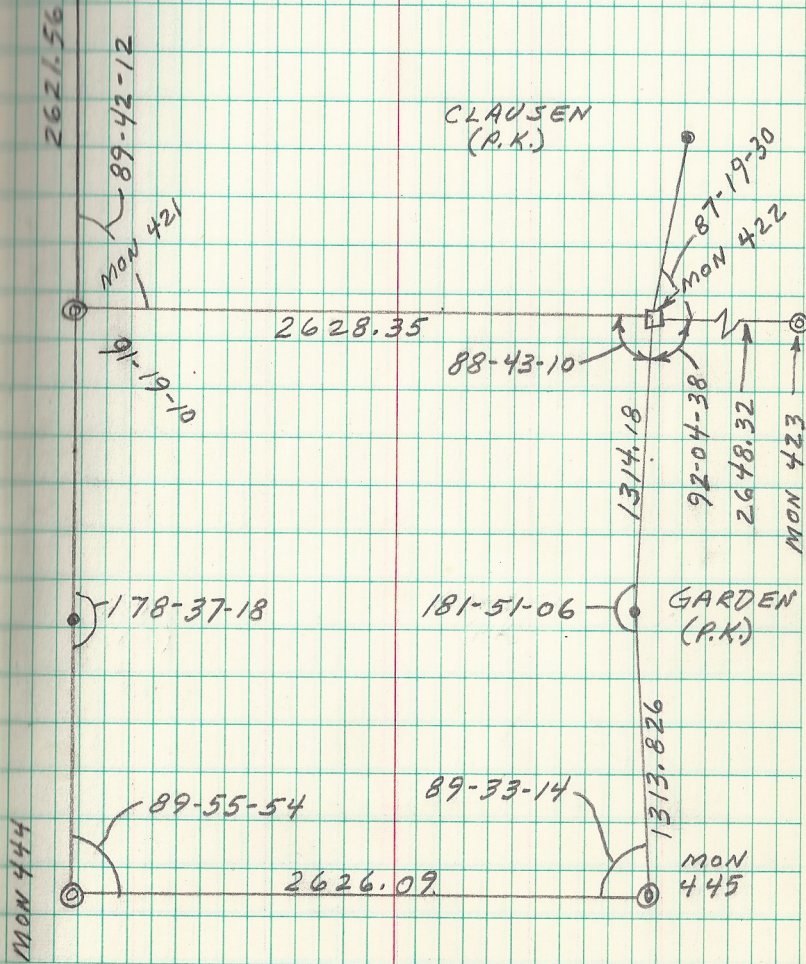 2621.56
89-42-12
CLAUSEN
(P.K.)
87-19-30
MON 421
MON 422
2628.35
91-19-10
88-43-10
1314.18
92-04-38
2648.32
MON 423
178-37-18
181-51-06
GARDEN
(P.K.)
1313.826
89-55-54
89-33-14
MON 444
2626.09
MON
445